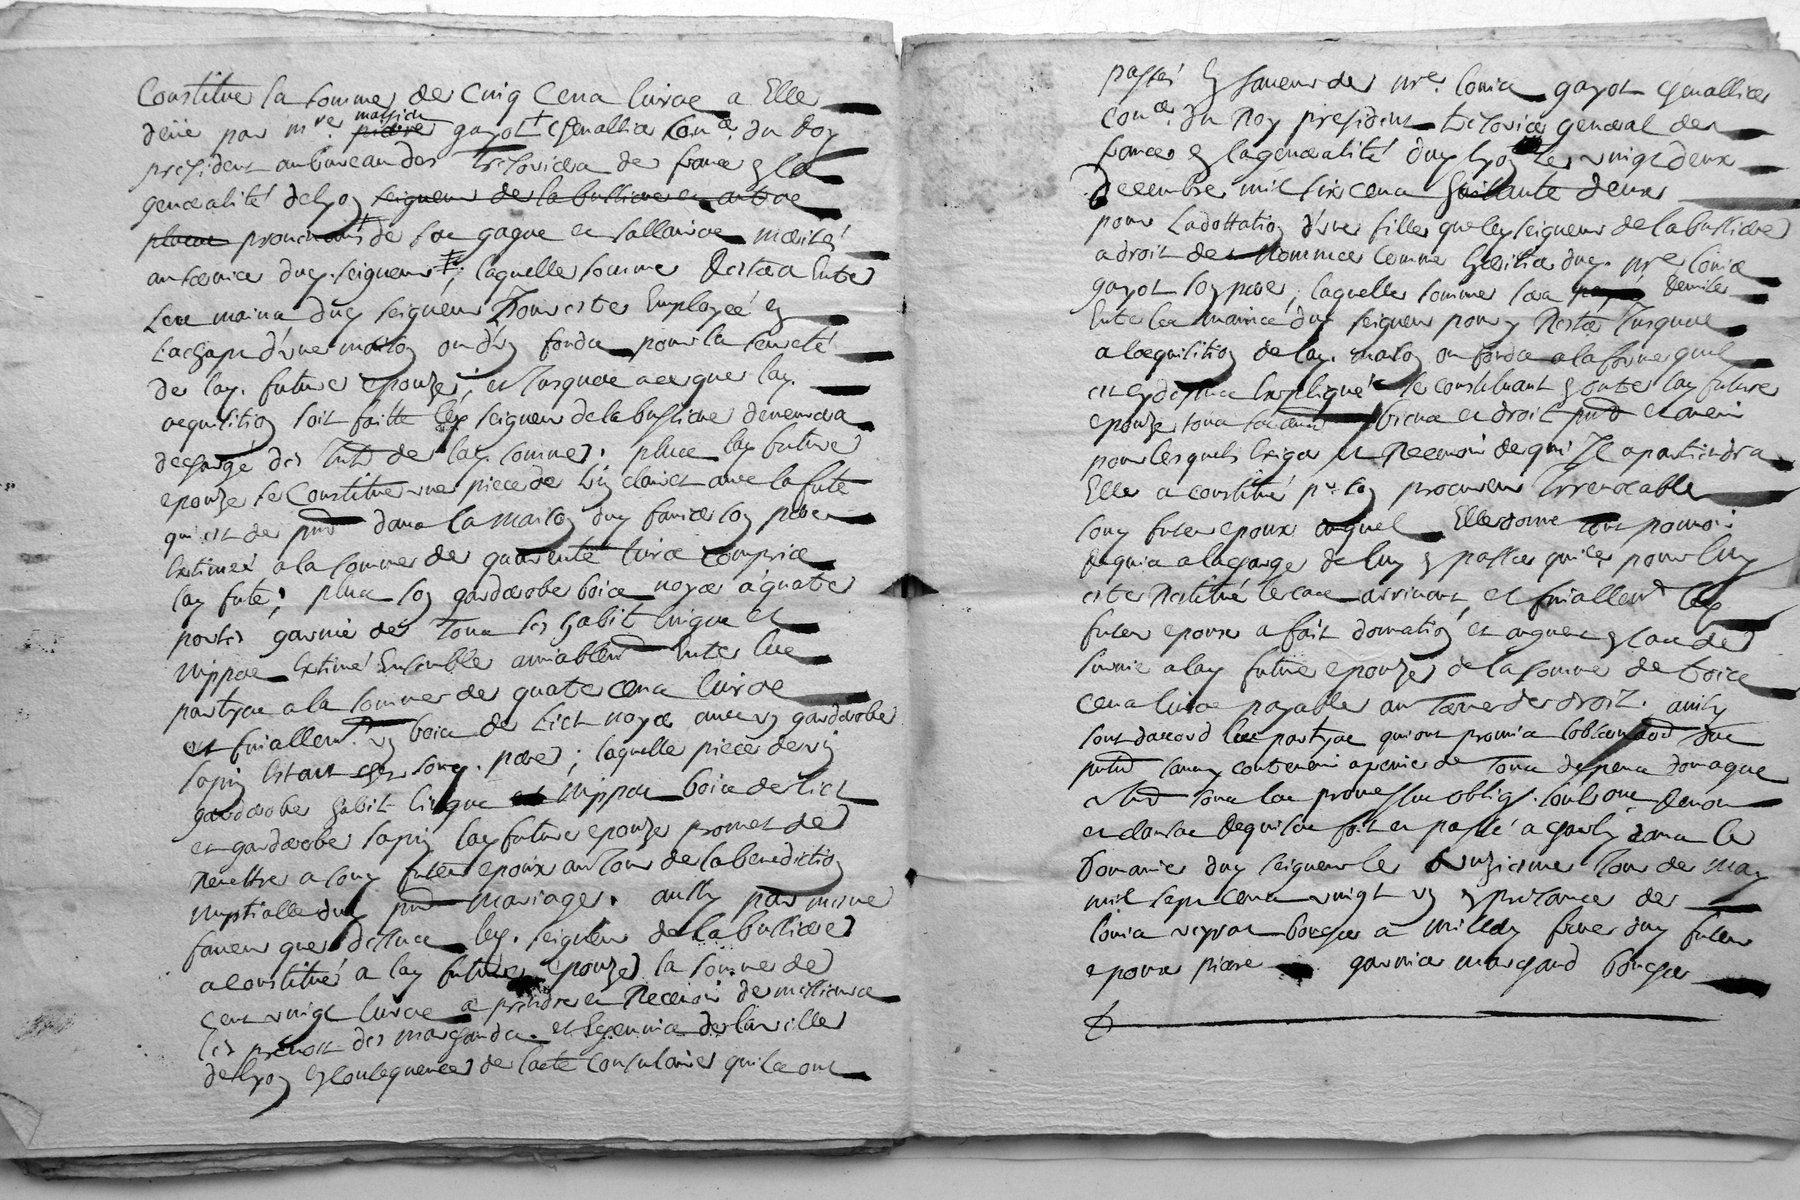 Constitue la somme de cinq cens livres a Elle
deüe par mre mathieu pierre gayot + chevallier conser du Roy
president au bureau des tresoriers de france en la
generalité de lyon seigneur de la bussiere et autres
places provenants de ses gages et sallaires merités
au service dud. seigneur ; laquelle somme restera Entre
les mains dud seigneur pour estre Employée en
Lachapt d'une maison ou d'un fonds pour la seureté
de lad. future epouze, et jusques a ce que lad.
acquisition soit faitte led seigneur de la bussiere demeurera
dechargé des de lad. somme. plus lad future
epouze se Constitue une piece de vin clairet avec la fute
qui est de pnt dans la maison dud son pere
Extimée a la somme de quarente livres comprise
lad fute ; plus son garderobe bois noyer a quatre
portes garnie de tous ses habits linges et
nippes Extimé Ensemble amiablemt Entre les
partyes a la somme de quatre cens livres
et finallemt. un bois de lict noyer avec un garderobe
sapin Estant chez sond. pere ; laquelle piece de vin
garderobe habit linges et nippes bois de lict
et garderobe sapin lad future epouze promet de
remettre a sond futur epoux au jour de la benediction
nuptialle dud pnt mariage. aussy par mesme
faveur que dessus led. seigneur de la bussiere
a constitué a lad future epouze la somme de
cent vingt livres a prendre et recevoir de messieurs
les prevost des marchands et Echevins de la ville
de lyon en consequence de l'acte consulaire quils ont
passé en faveur de mre. louis gayot chevallier
conser. du Roy president tresorier general de
france en la generalité dud lyon le vingt deux
Decembre mil six cens soixante deux
pour Ladottation d'une fille que led seigneur de la bussiere
a droit de nommer comme heritier dud. mre louis
gayot son pere ; laquelle somme sera remise
Entre les mains dud seigneur pour y rester jusques
a lacquisition de lad. maison ou fonds a la forme quil
est cy dessus Expliqué se constituant en outre lad future
epouze tous ses autres biens et droit pnt et avenir
pour lesquels Exiger et Recevoir de qui Il apartiendra
Elle a constitué pr. son procureur Irrevocable
sond futur epoux auquel Elle donne tout pouvoir
requis a la charge de luy en passer quitce pour luy
estre Restitué le cas arrivant, et finallemt led
futur epoux a fait donation et augment en cas de
survie a lad future epouze de la somme de trois
cens livres payable au terme de droit. ainsy
sont daccord les partyes qui ont promis lobservaon du
pnt contenu a peine de tous depens domages
Intts sous les promesses oblig. soubson Renon
et clauses Requises fait et passé a charly dans le
Domaine dud seigneur le unzieme jour de may
mil sept cens vingt un en presence de
louis veyrat boucher a millery frere dud futur
epoux pierre garnier marchand boucher